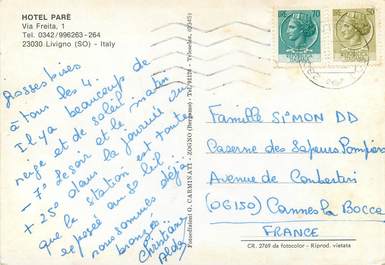 HOTEL PARÈ
Via Freita, 1
Tel. 0342/996263-264
23030 Livigno (SO) - Italy
Grosses bises
à tous les 4.
Il y a beaucoup de
neige et de soleil
- 7° le soir et le matin
+ 25° dans la journée vu
que la station est toute
exposé au soleil
nous sommes déjà
bronzés
Christiane
Fotoedizioni G. CARMINATI - ZOGNO (Bergamo) - Tel.
Famille SIMON DD
Caserne des Sapeurs Pompiers
Avenue de
(06150) Cannes la Bocca
FRANCE
CR. 2769 da fotocolor - Riprod. vietata
70
50